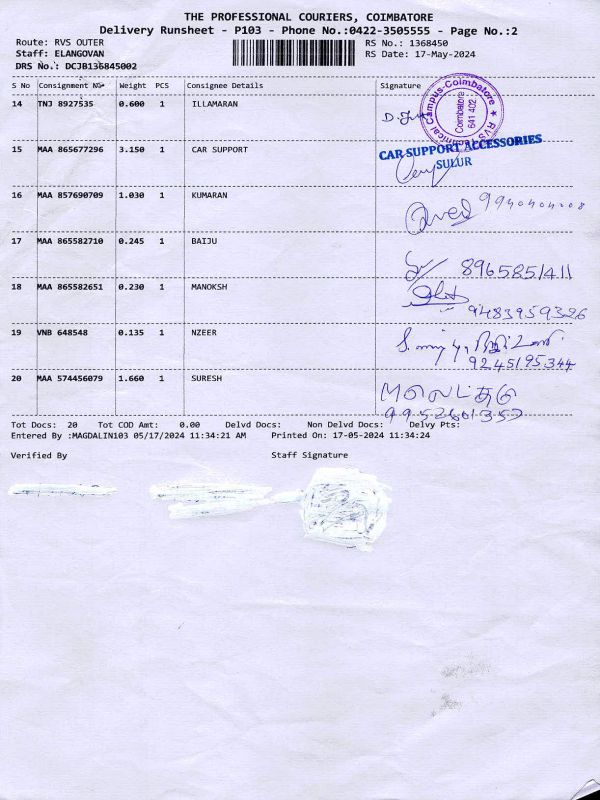 THE PROFESSIONAL COURIERS, COIMBATORE
Delivery Runsheet - P103 - Phone No.:0422-3505555 - Page No.:2
Route: RVS OUTER RS No.: 1368450
Staff: ELANGOVAN RS Date: 17-May-2024
DRS No.: DCJB136845002
S No Consignment NO Weight PCS Consignee Details Signature
14 TNJ 8927535 0.600 1 ILLAMARAN
Technical Campus-Coimbatore ★ RVS
Coimbatore
641 402
15 MAA 865677296 3.150 1 CAR SUPPORT
CAR SUPPORT ACCESSORIES
SULUR
16 MAA 857690709 1.030 1 KUMARAN
17 MAA 865582710 0.245 1 BAIJU
8965851411
18 MAA 865582651 0.230 1 MANOKSH
9483959326
19 VNB 648548 0.135 1 NZEER
9245195344
20 MAA 574456079 1.660 1 SURESH
Tot Docs: 20 Tot COD Amt: 0.00 Delvd Docs: Non Delvd Docs: Delvy Pts:
Entered By :MAGDALIN103 05/17/2024 11:34:21 AM Printed On: 17-05-2024 11:34:24
Verified By Staff Signature